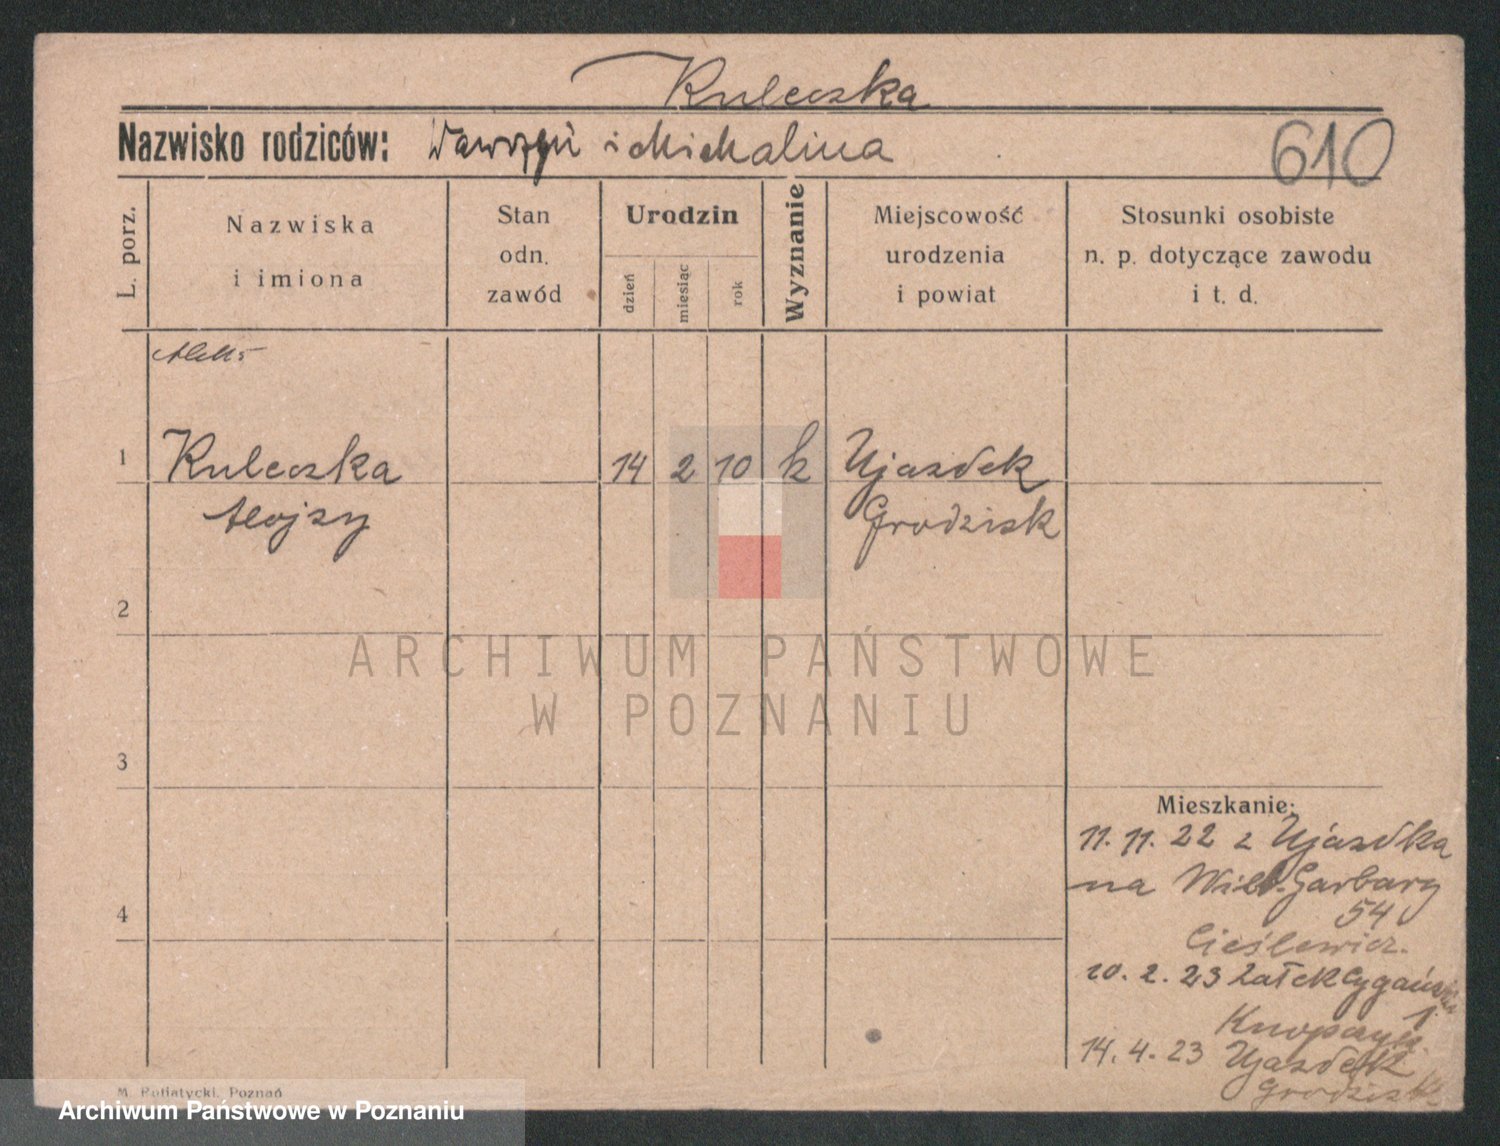 Kuleczka
Nazwisko rodziców: Wawrzyn i Michalina
610
L. porz.
Nazwiska
i imiona
Stan
odn.
zawód
Urodzin
dzień
miesiąc
rok
Wyznanie
Miejscowość
urodzenia
i powiat
Stosunki osobiste
n. p. dotyczące zawodu
i t. d.
1 Kuleczka 14 2 10 k Ujazdek
Alojzy Grodzisk
2
ARCHIWUM PAŃSTWOWE
W POZNANIU
3
Mieszkanie:
11. 11. 22 z Ujazdka
na Wilk. Garbary
4
54
Cieślewicz.
10. 2. 23 Łatek
1.
14. 4. 23 Ujazdek
Grodzisk
M. Putiatycki, Poznań
Archiwum Państwowe w Poznaniu